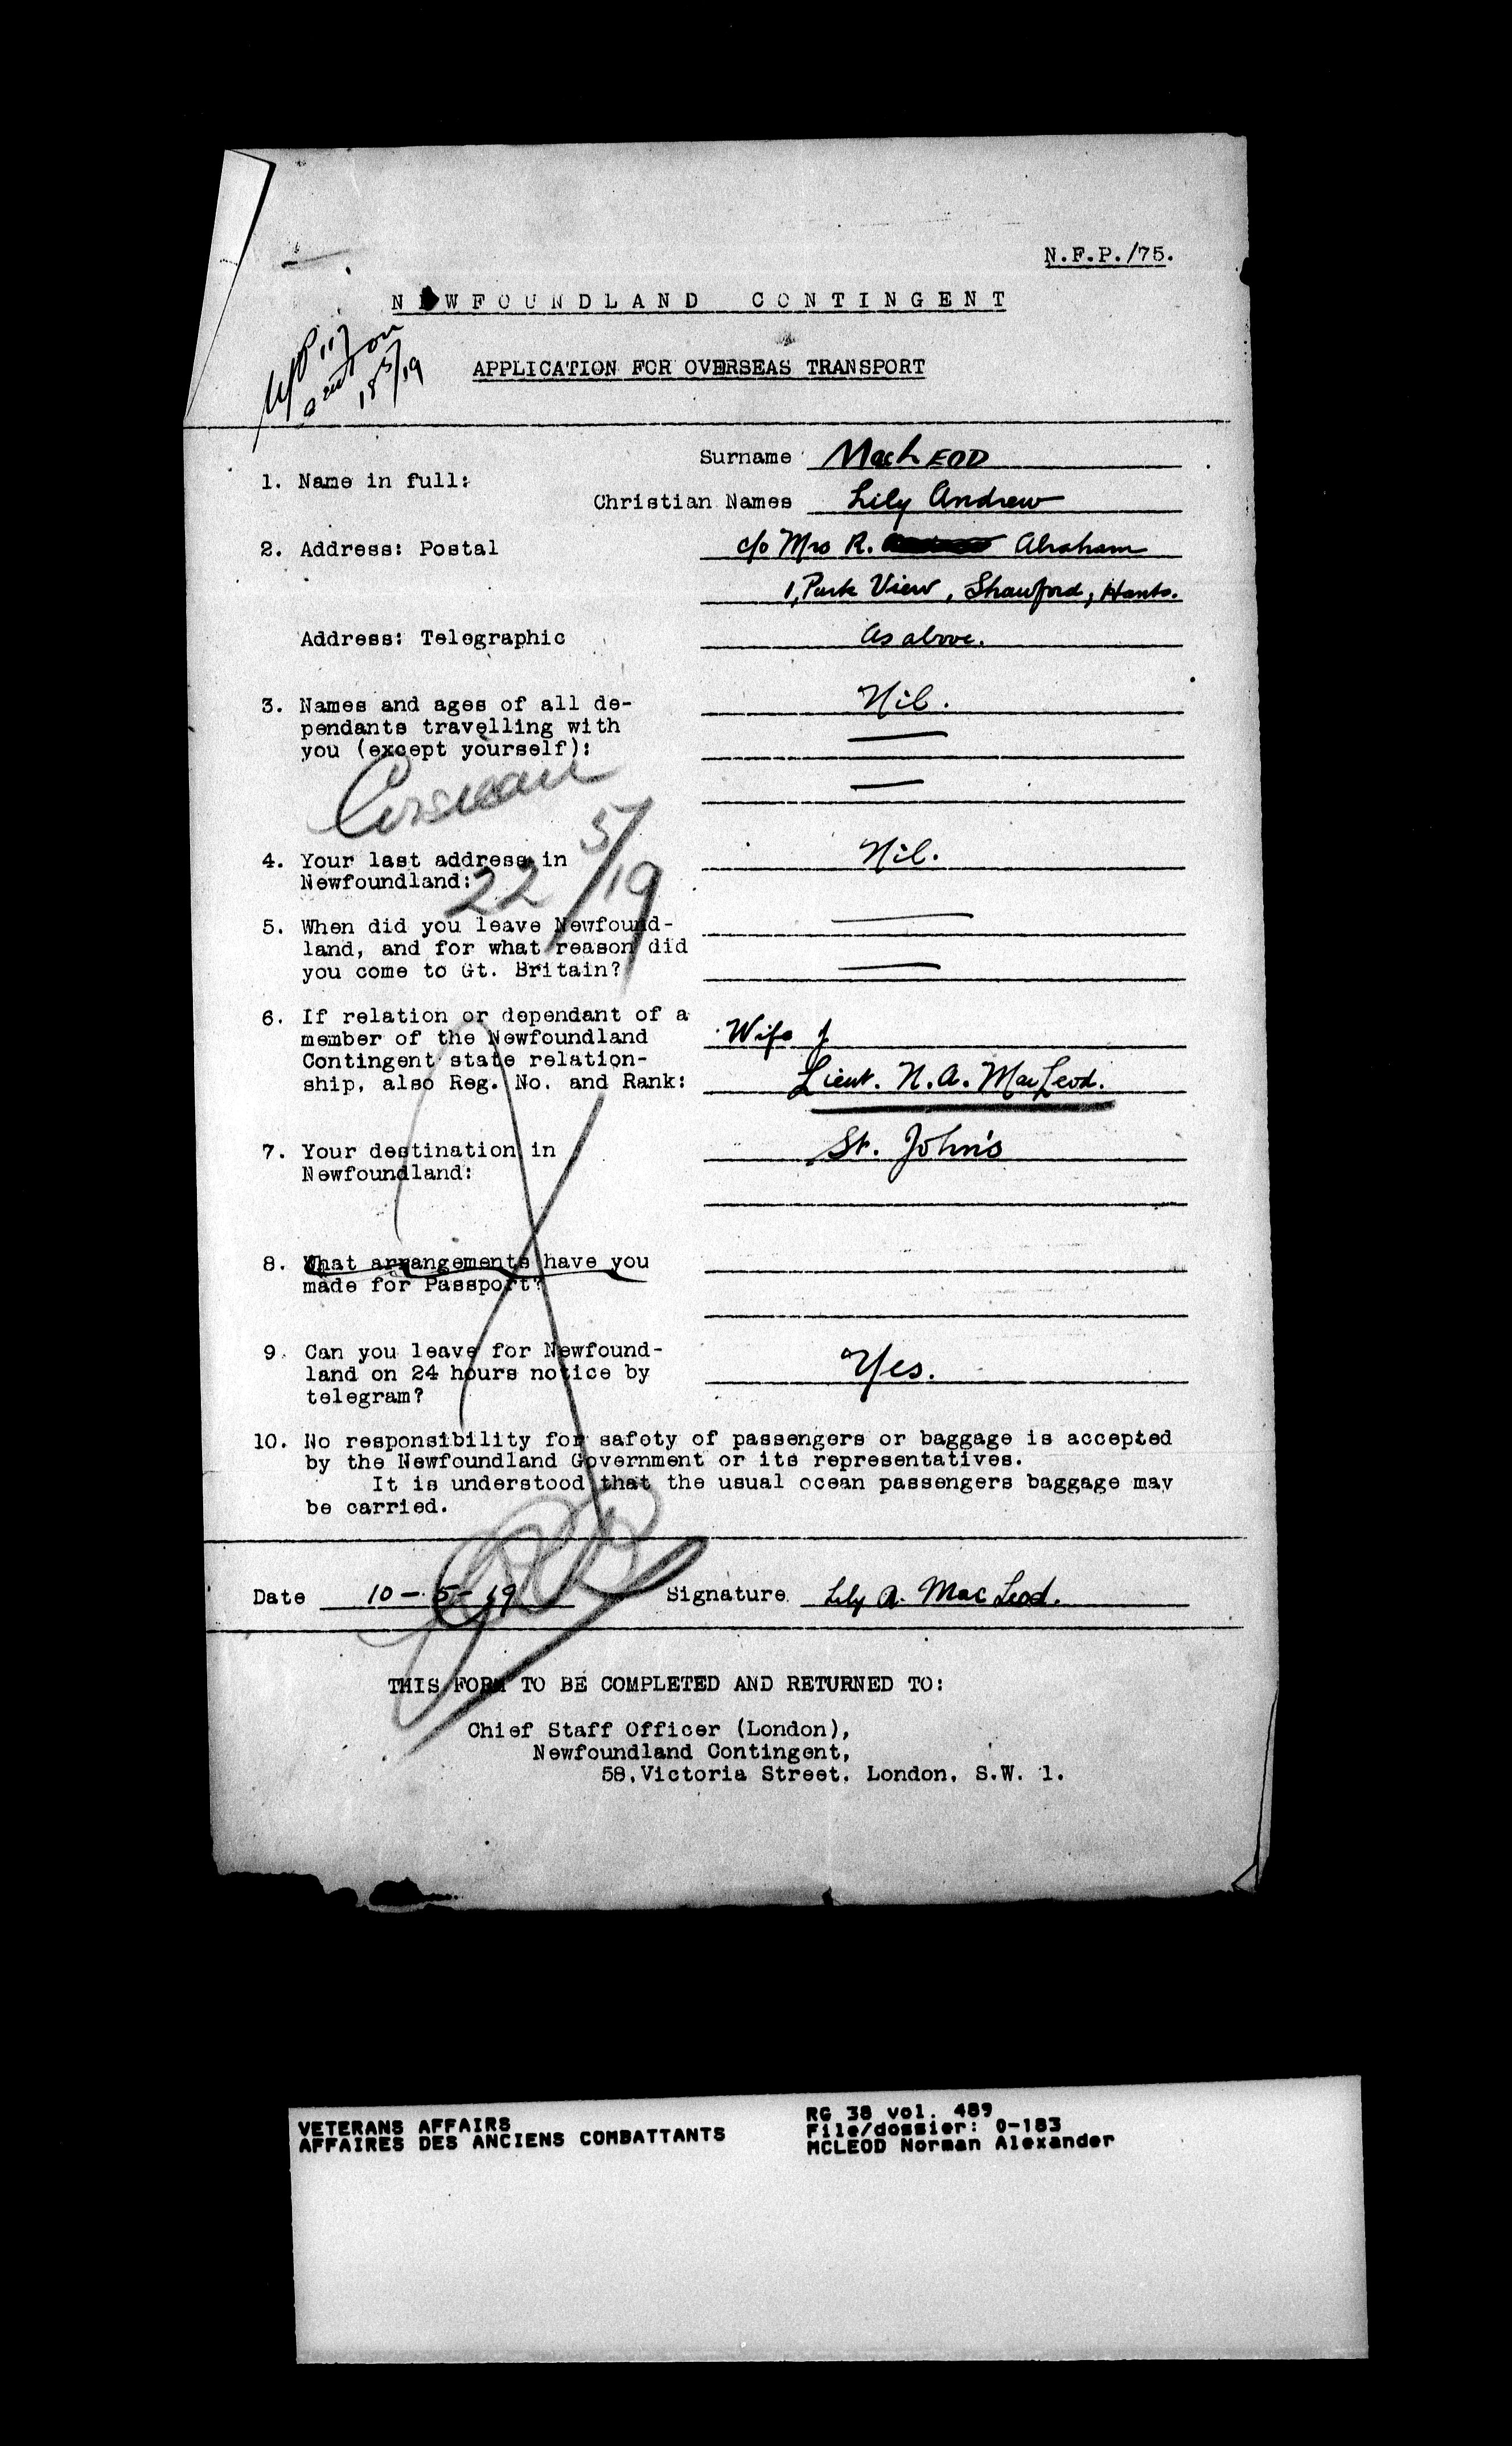 N.F.P./75.
NEWFOUNDLAND CONTINGENT
APPLICATION FOR OVERSEAS TRANSPORT
18/5/19
Surname MacLEOD
1. Name in full:
Christian Names Lily Andrew
2. Address: Postal c/o Mrs R. Abraham
1, Park View, Shawford, Hants.
Address: Telegraphic As above.
3. Names and ages of all de- Nil.
pendants travelling with
you (except yourself):
Corsican
22/5/19
4. Your last address in Nil.
Newfoundland:
5. When did you leave Newfound-
land, and for what reason did
you come to Gt. Britain?
6. If relation or dependant of a
member of the Newfoundland Wife of
Contingent state relation-
ship, also Reg. No. and Rank: Lieut. N.A. MacLeod.
7. Your destination in St. John's
Newfoundland:
8. What arrangements have you
made for Passport?
9. Can you leave for Newfound-
land on 24 hours notice by Yes.
telegram?
10. No responsibility for safety of passengers or baggage is accepted
by the Newfoundland Government or its representatives.
It is understood that the usual ocean passengers baggage may
be carried.
Date 10-5-19 Signature Lily A. MacLeod.
THIS FORM TO BE COMPLETED AND RETURNED TO:
Chief Staff Officer (London),
Newfoundland Contingent,
58, Victoria Street, London, S.W. 1.
VETERANS AFFAIRS
AFFAIRES DES ANCIENS COMBATTANTS
RG 38 vol. 489
File/dossier: 0-183
MCLEOD Norman Alexander